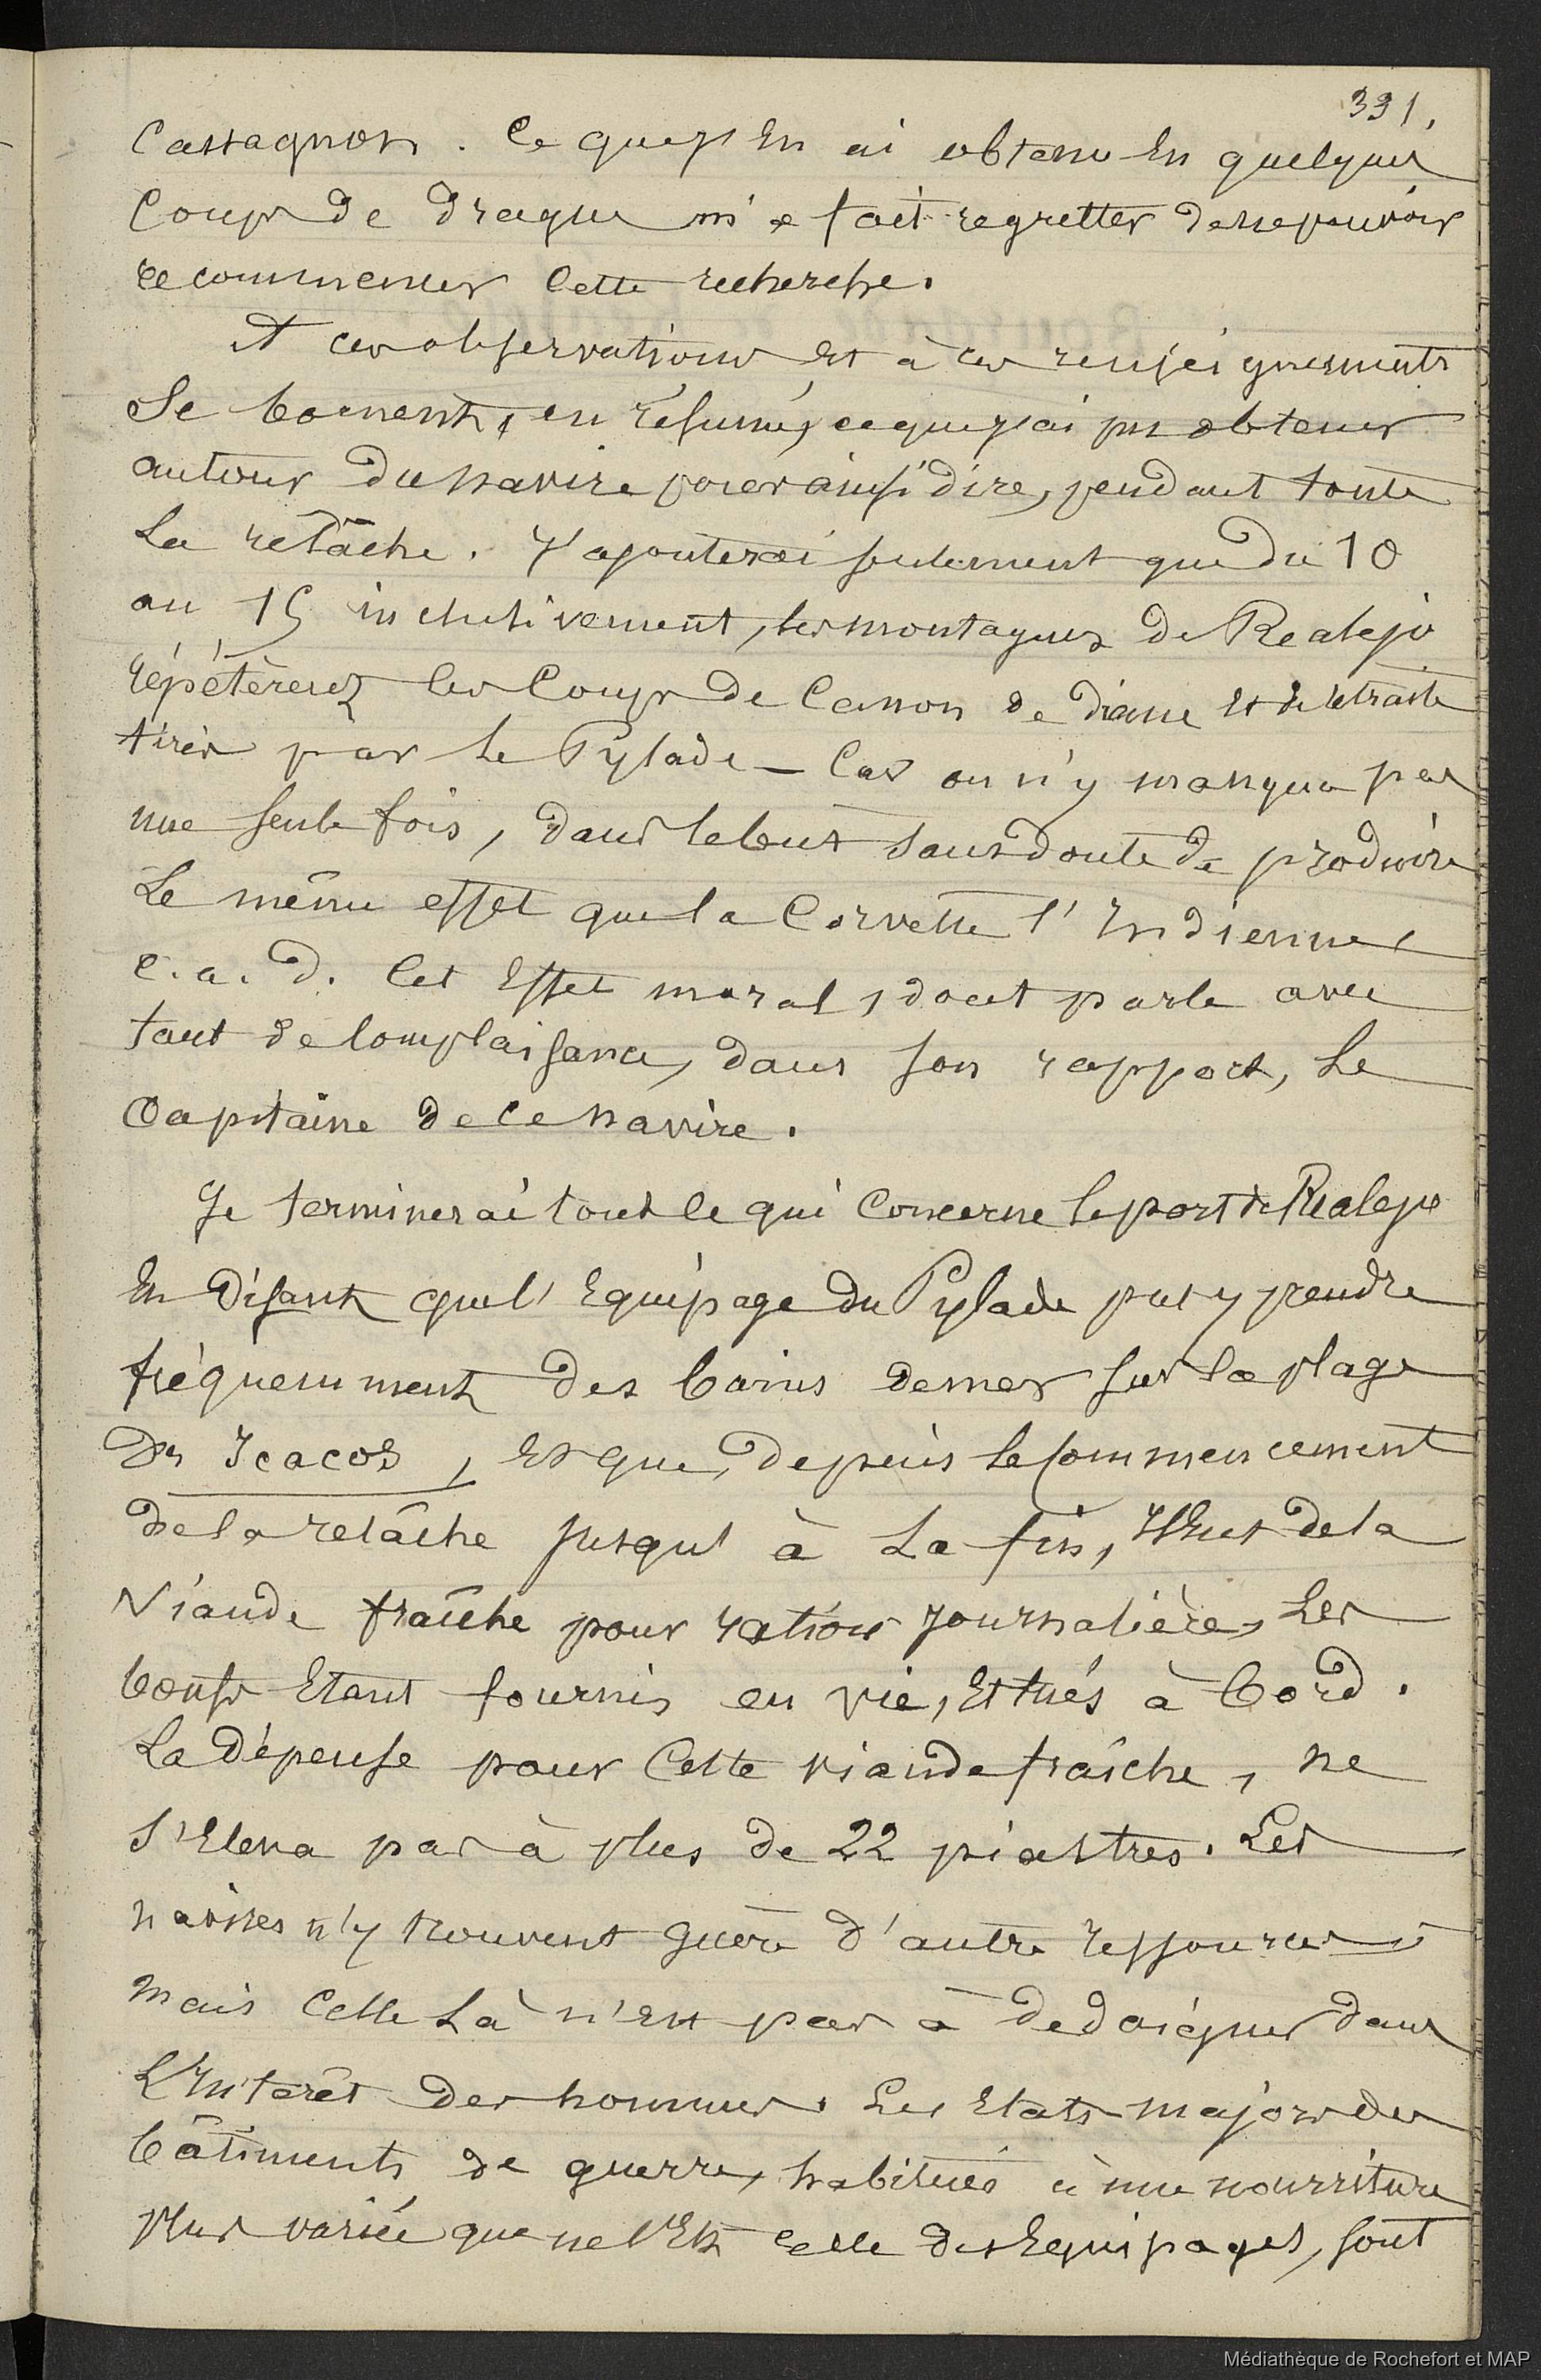 391.
Cassagnon. Ce que j'en ai obtenu en quelques
coups de drague m'a fait regretter de ne pouvoir
recommencer cette recherche.
A ces observations et à ces renseignements
se bornent, en résumé, ce que j'ai pu obtenir
autour du navire pour ainsi dire, pendant toute
la relâche. J'ajouterai seulement que du 10
au 15 inclusivement, les montagnes de Realejo
répétèrent les coups de canon de diane et de retraite
tirés par le Pylade – Car on n'y manqua pas
une seule fois, dans le but sans doute de produire
le même effet que la Corvette l'Indienne,
c.a.d. cet effet moral, dont parle avec
tant de complaisance, dans son rapport, le
Capitaine de ce navire.
Je terminerai tout ce qui concerne le port de Realejo
en disant que l'Equipage du Pylade put y prendre
fréquemment des bains de mer sur la plage
des Icacos, et que, depuis le commencement
de la relâche jusqu'à la fin, il eut de la
viande fraîche pour ration journalière, les
boeufs étant fournis en vie, et tués à bord.
La dépense pour cette viande fraîche, ne
s'éleva pas à plus de 22 piastres. Les
navires n'y trouvent guère d'autre ressource ;
mais celle là n'est pas à dedaigner dans
l'Intérêt des hommes. Les Etats majors des
bâtiments de guerre, habitués à une nourriture
plus variée que ne l'Est celle des Equipages, sont
Médiathèque de Rochefort et MAP